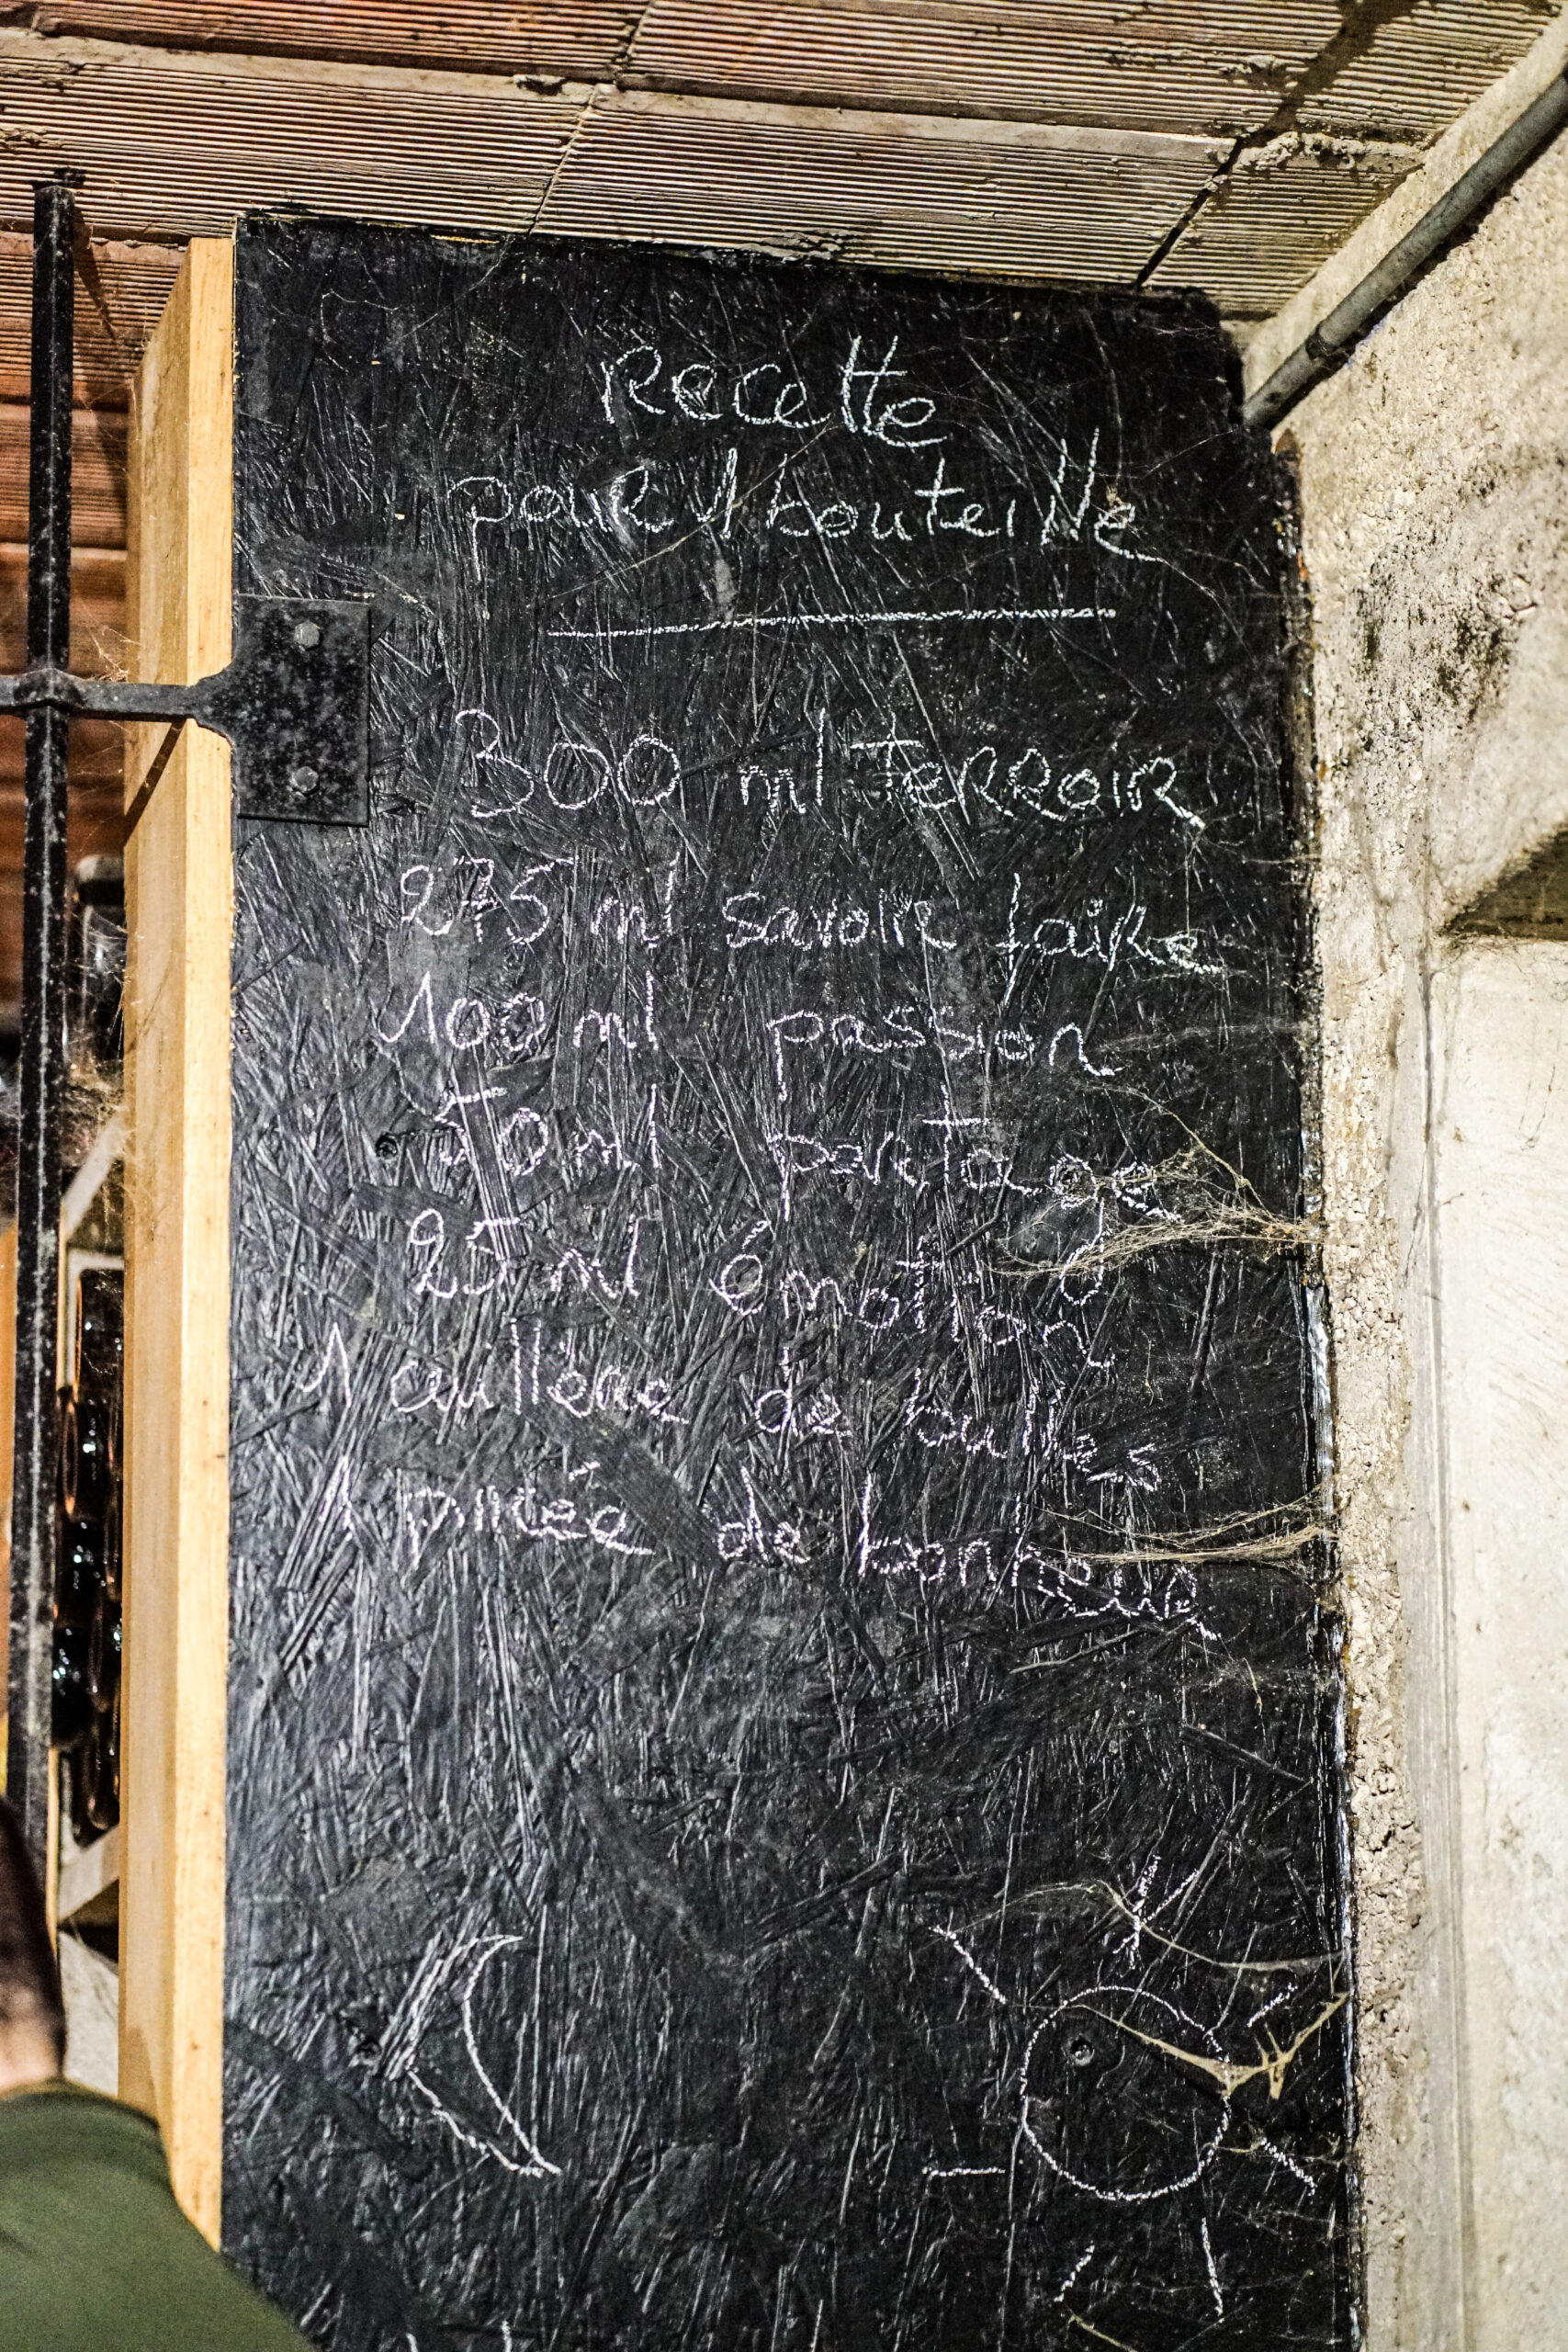 Recette
pour 1 bouteille
300 ml Terroir
275 ml savoir faire
100 ml passion
50 ml partage
25 ml émotion
1 cuillère de bulles
1 pincée de bonheur